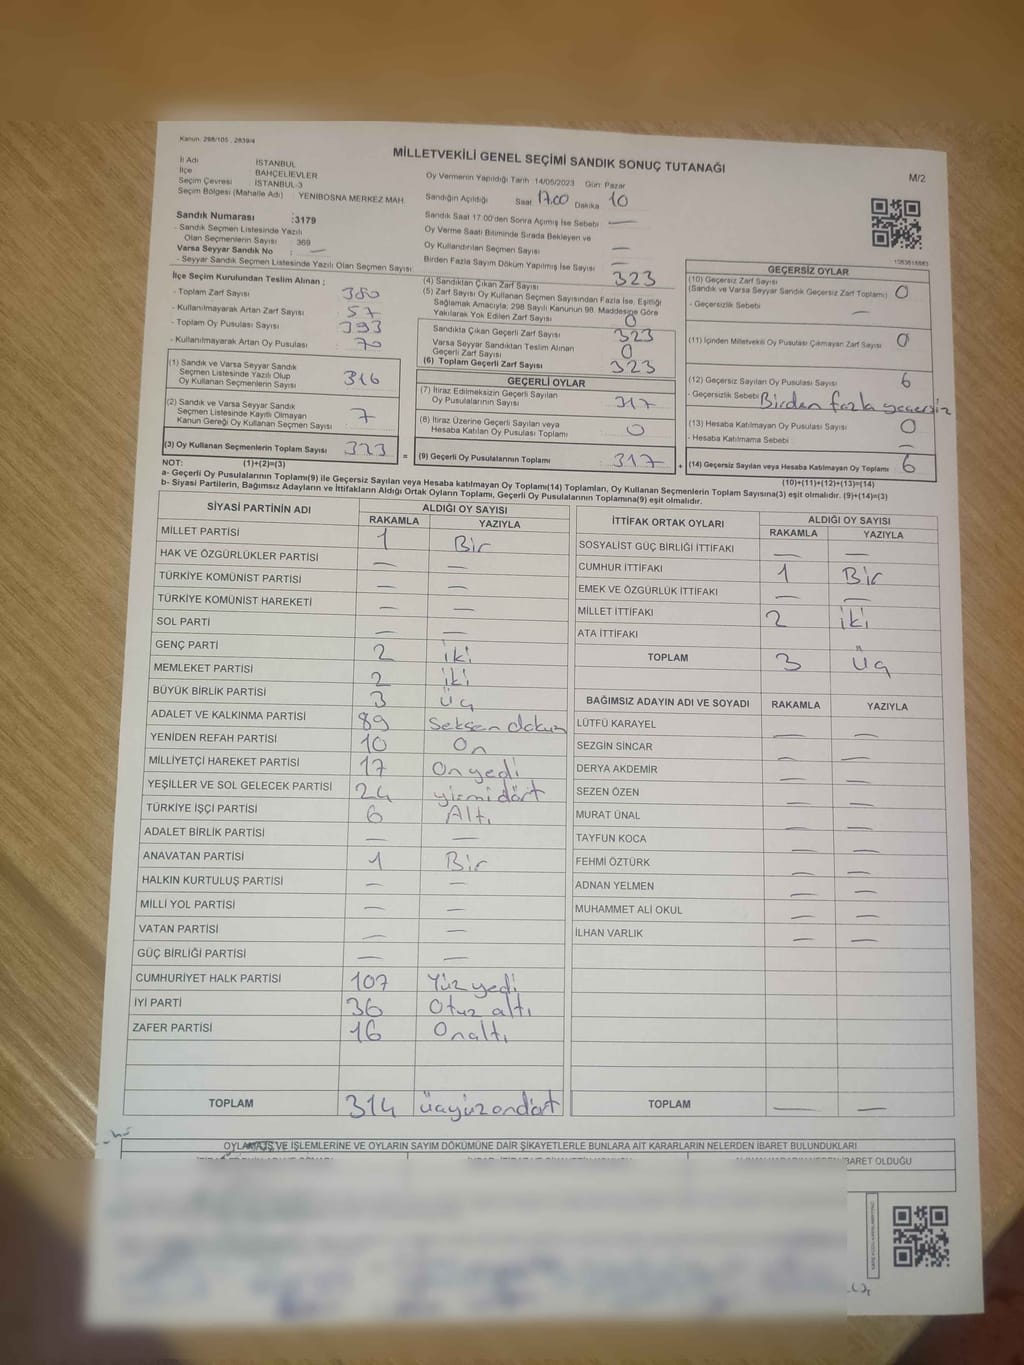 Kanun: 298/105 , 2839/4
MİLLETVEKİLİ GENEL SEÇİMİ SANDIK SONUÇ TUTANAĞI
M/2
İl Adı İSTANBUL
İlçe BAHÇELİEVLER
Seçim Çevresi İSTANBUL-3
Seçim Bölgesi (Mahalle Adı) : YENİBOSNA MERKEZ MAH.
Oy Vermenin Yapıldığı Tarih 14/05/2023 Gün: Pazar
Sandığın Açıldığı Saat 17.00 Dakika 10
Sandık Saat 17.00'den Sonra Açımış İse Sebebi —
Oy Verme Saati Bitiminde Sırada Bekleyen ve
Oy Kullandırılan Seçmen Sayısı —
Birden Fazla Sayım Döküm Yapılmış İse Sayısı —
Sandık Numarası :3179
- Sandık Seçmen Listesinde Yazılı
Olan Seçmenlerin Sayısı : 369
Varsa Seyyar Sandık No : —
- Seyyar Sandık Seçmen Listesinde Yazılı Olan Seçmen Sayısı:
İlçe Seçim Kurulundan Teslim Alınan ;
- Toplam Zarf Sayısı 380
- Kullanılmayarak Artan Zarf Sayısı 57
- Toplam Oy Pusulası Sayısı 393
- Kullanılmayarak Artan Oy Pusulası 70
(1) Sandık ve Varsa Seyyar Sandık
Seçmen Listesinde Yazılı Olup
Oy Kullanan Seçmenlerin Sayısı 316
(2) Sandık ve Varsa Seyyar Sandık
Seçmen Listesinde Kayıtlı Olmayan
Kanun Gereği Oy Kullanan Seçmen Sayısı 7
(3) Oy Kullanan Seçmenlerin Toplam Sayısı 323 =
(1)+(2)=(3)
(4) Sandıktan Çıkan Zarf Sayısı 323
(5) Zarf Sayısı Oy Kullanan Seçmen Sayısından Fazla İse, Eşitliği
Sağlamak Amacıyla; 298 Sayılı Kanunun 98. Maddesine Göre
Yakılarak Yok Edilen Zarf Sayısı 0
Sandıkta Çıkan Geçerli Zarf Sayısı 323
Varsa Seyyar Sandıktan Teslim Alınan
Geçerli Zarf Sayısı 0
(6) Toplam Geçerli Zarf Sayısı 323
GEÇERLİ OYLAR
(7) İtiraz Edilmeksizin Geçerli Sayılan
Oy Pusulalarının Sayısı 317
(8) İtiraz Üzerine Geçerli Sayılan veya
Hesaba Katılan Oy Pusulası Toplamı 0
(9) Geçerli Oy Pusulalarının Toplamı 317 +
1083618883
GEÇERSİZ OYLAR
(10) Geçersiz Zarf Sayısı
(Sandık ve Varsa Seyyar Sandık Geçersiz Zarf Toplamı) 0
- Geçersizlik Sebebi —
(11) İçinden Milletvekili Oy Pusulası Çıkmayan Zarf Sayısı 0
(12) Geçersiz Sayılan Oy Pusulası Sayısı 6
- Geçersizlik Sebebi Birden fazla geçersiz
(13) Hesaba Katılmayan Oy Pusulası Sayısı 0
- Hesaba Katılmama Sebebi : —
(14) Geçersiz Sayılan veya Hesaba Katılmayan Oy Toplamı 6
(10)+(11)+(12)+(13)=(14)
NOT:
a- Geçerli Oy Pusulalarının Toplamı(9) ile Geçersiz Sayılan veya Hesaba katılmayan Oy Toplamı(14) Toplamları, Oy Kullanan Seçmenlerin Toplam Sayısına(3) eşit olmalıdır. (9)+(14)=(3)
b- Siyasi Partilerin, Bağımsız Adayların ve İttifakların Aldığı Ortak Oyların Toplamı, Geçerli Oy Pusulalarının Toplamına(9) eşit olmalıdır.
SİYASİ PARTİNİN ADI ALDIĞI OY SAYISI
RAKAMLA YAZIYLA
MİLLET PARTİSİ 1 Bir
HAK VE ÖZGÜRLÜKLER PARTİSİ — —
TÜRKİYE KOMÜNİST PARTİSİ — —
TÜRKİYE KOMÜNİST HAREKETİ — —
SOL PARTİ — —
GENÇ PARTİ 2 iki
MEMLEKET PARTİSİ 2 iki
BÜYÜK BİRLİK PARTİSİ 3 Üç
ADALET VE KALKINMA PARTİSİ 89 Seksen dokuz
YENİDEN REFAH PARTİSİ 10 On
MİLLİYETÇİ HAREKET PARTİSİ 17 On yedi
YEŞİLLER VE SOL GELECEK PARTİSİ 24 yirmi dört
TÜRKİYE İŞÇİ PARTİSİ 6 Altı
ADALET BİRLİK PARTİSİ — —
ANAVATAN PARTİSİ 1 Bir
HALKIN KURTULUŞ PARTİSİ — —
MİLLİ YOL PARTİSİ — —
VATAN PARTİSİ — —
GÜÇ BİRLİĞİ PARTİSİ — —
CUMHURİYET HALK PARTİSİ 107 Yüz yedi
İYİ PARTİ 36 Otuz altı
ZAFER PARTİSİ 16 On altı
TOPLAM 314 üçyüz ondört
İTTİFAK ORTAK OYLARI ALDIĞI OY SAYISI
RAKAMLA YAZIYLA
SOSYALİST GÜÇ BİRLİĞİ İTTİFAKI — —
CUMHUR İTTİFAKI 1 Bir
EMEK VE ÖZGÜRLÜK İTTİFAKI — —
MİLLET İTTİFAKI 2 iki
ATA İTTİFAKI
TOPLAM 3 Üç
BAĞIMSIZ ADAYIN ADI VE SOYADI RAKAMLA YAZIYLA
LÜTFÜ KARAYEL — —
SEZGİN SİNCAR — —
DERYA AKDEMİR — —
SEZEN ÖZEN — —
MURAT ÜNAL — —
TAYFUN KOCA — —
FEHMİ ÖZTÜRK — —
ADNAN YELMEN — —
MUHAMMET ALİ OKUL — —
İLHAN VARLIK — —
TOPLAM — —
OYLAMA İŞ VE İŞLEMLERİNE VE OYLARIN SAYIM DÖKÜMÜNE DAİR ŞİKAYETLERLE BUNLARA AİT KARARLARIN NELERDEN İBARET BULUNDUKLARI
İBARET OLDUĞU